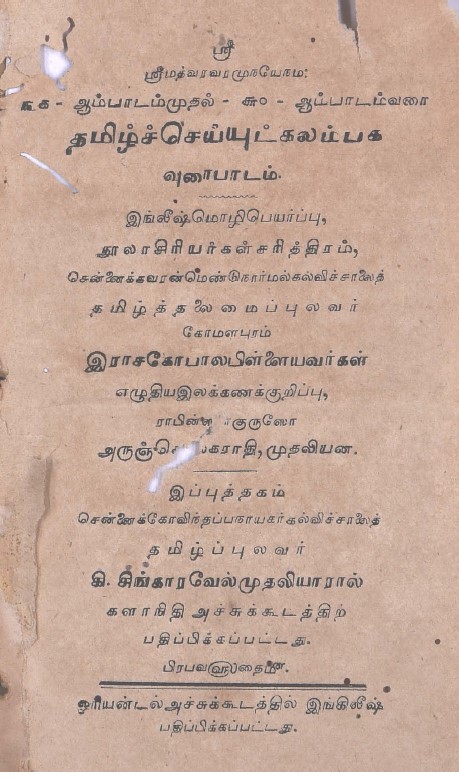 ஸ்ரீ
ஸ்ரீமத்வரவரமுநயேநம:
௩௧ - ஆம்பாடம்முதல் - ௬௦ - ஆம்பாடம்வரை
தமிழ்ச்செய்யுட்கலம்பக
வுரைபாடம்.
இங்லீஷ்மொழிபெயர்ப்பு,
நூலாசிரியர்கள்சரித்திரம்,
சென்னைக்கவரன்மெண்டுநார்மல்கல்விச்சாலைத்
தமிழ்த்தலைமைப்புலவர்
கோமளபுரம்
இராசகோபாலபிள்ளையவர்கள்
எழுதியஇலக்கணக்குறிப்பு,
ராபின்ஸ
அருஞ்சொ முதலியன.
இப்புத்தகம்
சென்னைக்கோவிந்தப்பநாயகர்கல்விச்சாலைத்
தமிழ்ப்புலவர்
கி. சிங்காரவேல்முதலியாரால்
களாநிதி அச்சுக்கூடத்திற்
பதிப்பிக்கப்பட்டது.
பிரபவ
ஓரியன்டல்அச்சுக்கூடத்தில் இங்கிலீஷ்
பதிப்பிக்கப்பட்டது.